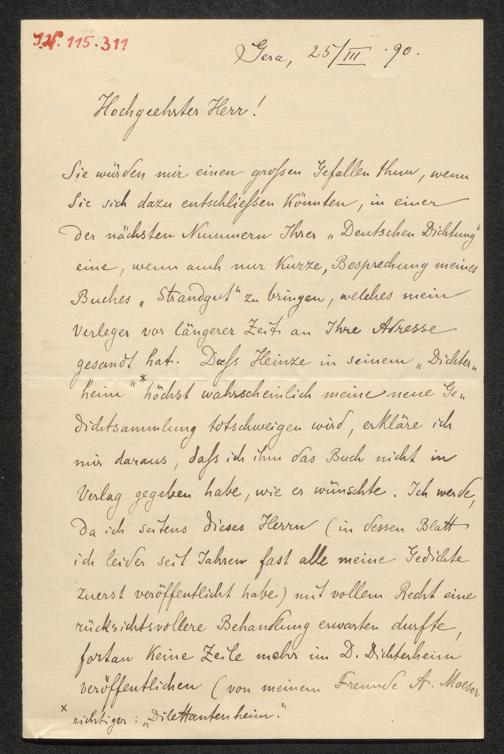 J.N. 115.311
Gera, 25/III. 90.
Hochgeehrter Herr!
Sie würden mir einen großen Gefallen thun, wenn
Sie sich dazu entschließen könnten, in einer
der nächsten Nummern Ihrer „Deutschen Dichtung"
eine, wenn auch nur kurze, Besprechung meines
Buches „Strandgut" zu bringen, welches mein
Verleger vor längerer Zeit an Ihre Adresse
gesandt hat. Daß Heinze in seinem „Dichter„
heim"* höchst wahrscheinlich meine neue Ge„
dichtsammlung totschweigen wird, erkläre ich
mir daraus, daß ich ihm das Buch nicht in
Verlag gegeben habe, wie er wünschte. Ich werde,
da ich seitens dieses Herrn (in dessen Blatt
ich leider seit Jahren fast alle meine Gedichte
zuerst veröffentlicht habe) mit vollem Recht eine
rücksichtsvollere Behandlung erwarten durfte,
fortan keine Zeile mehr im D. Dichterheim
veröffentlichen (von meinem Freunde A. Moeser
* richtiger: „Dilettantenheim."